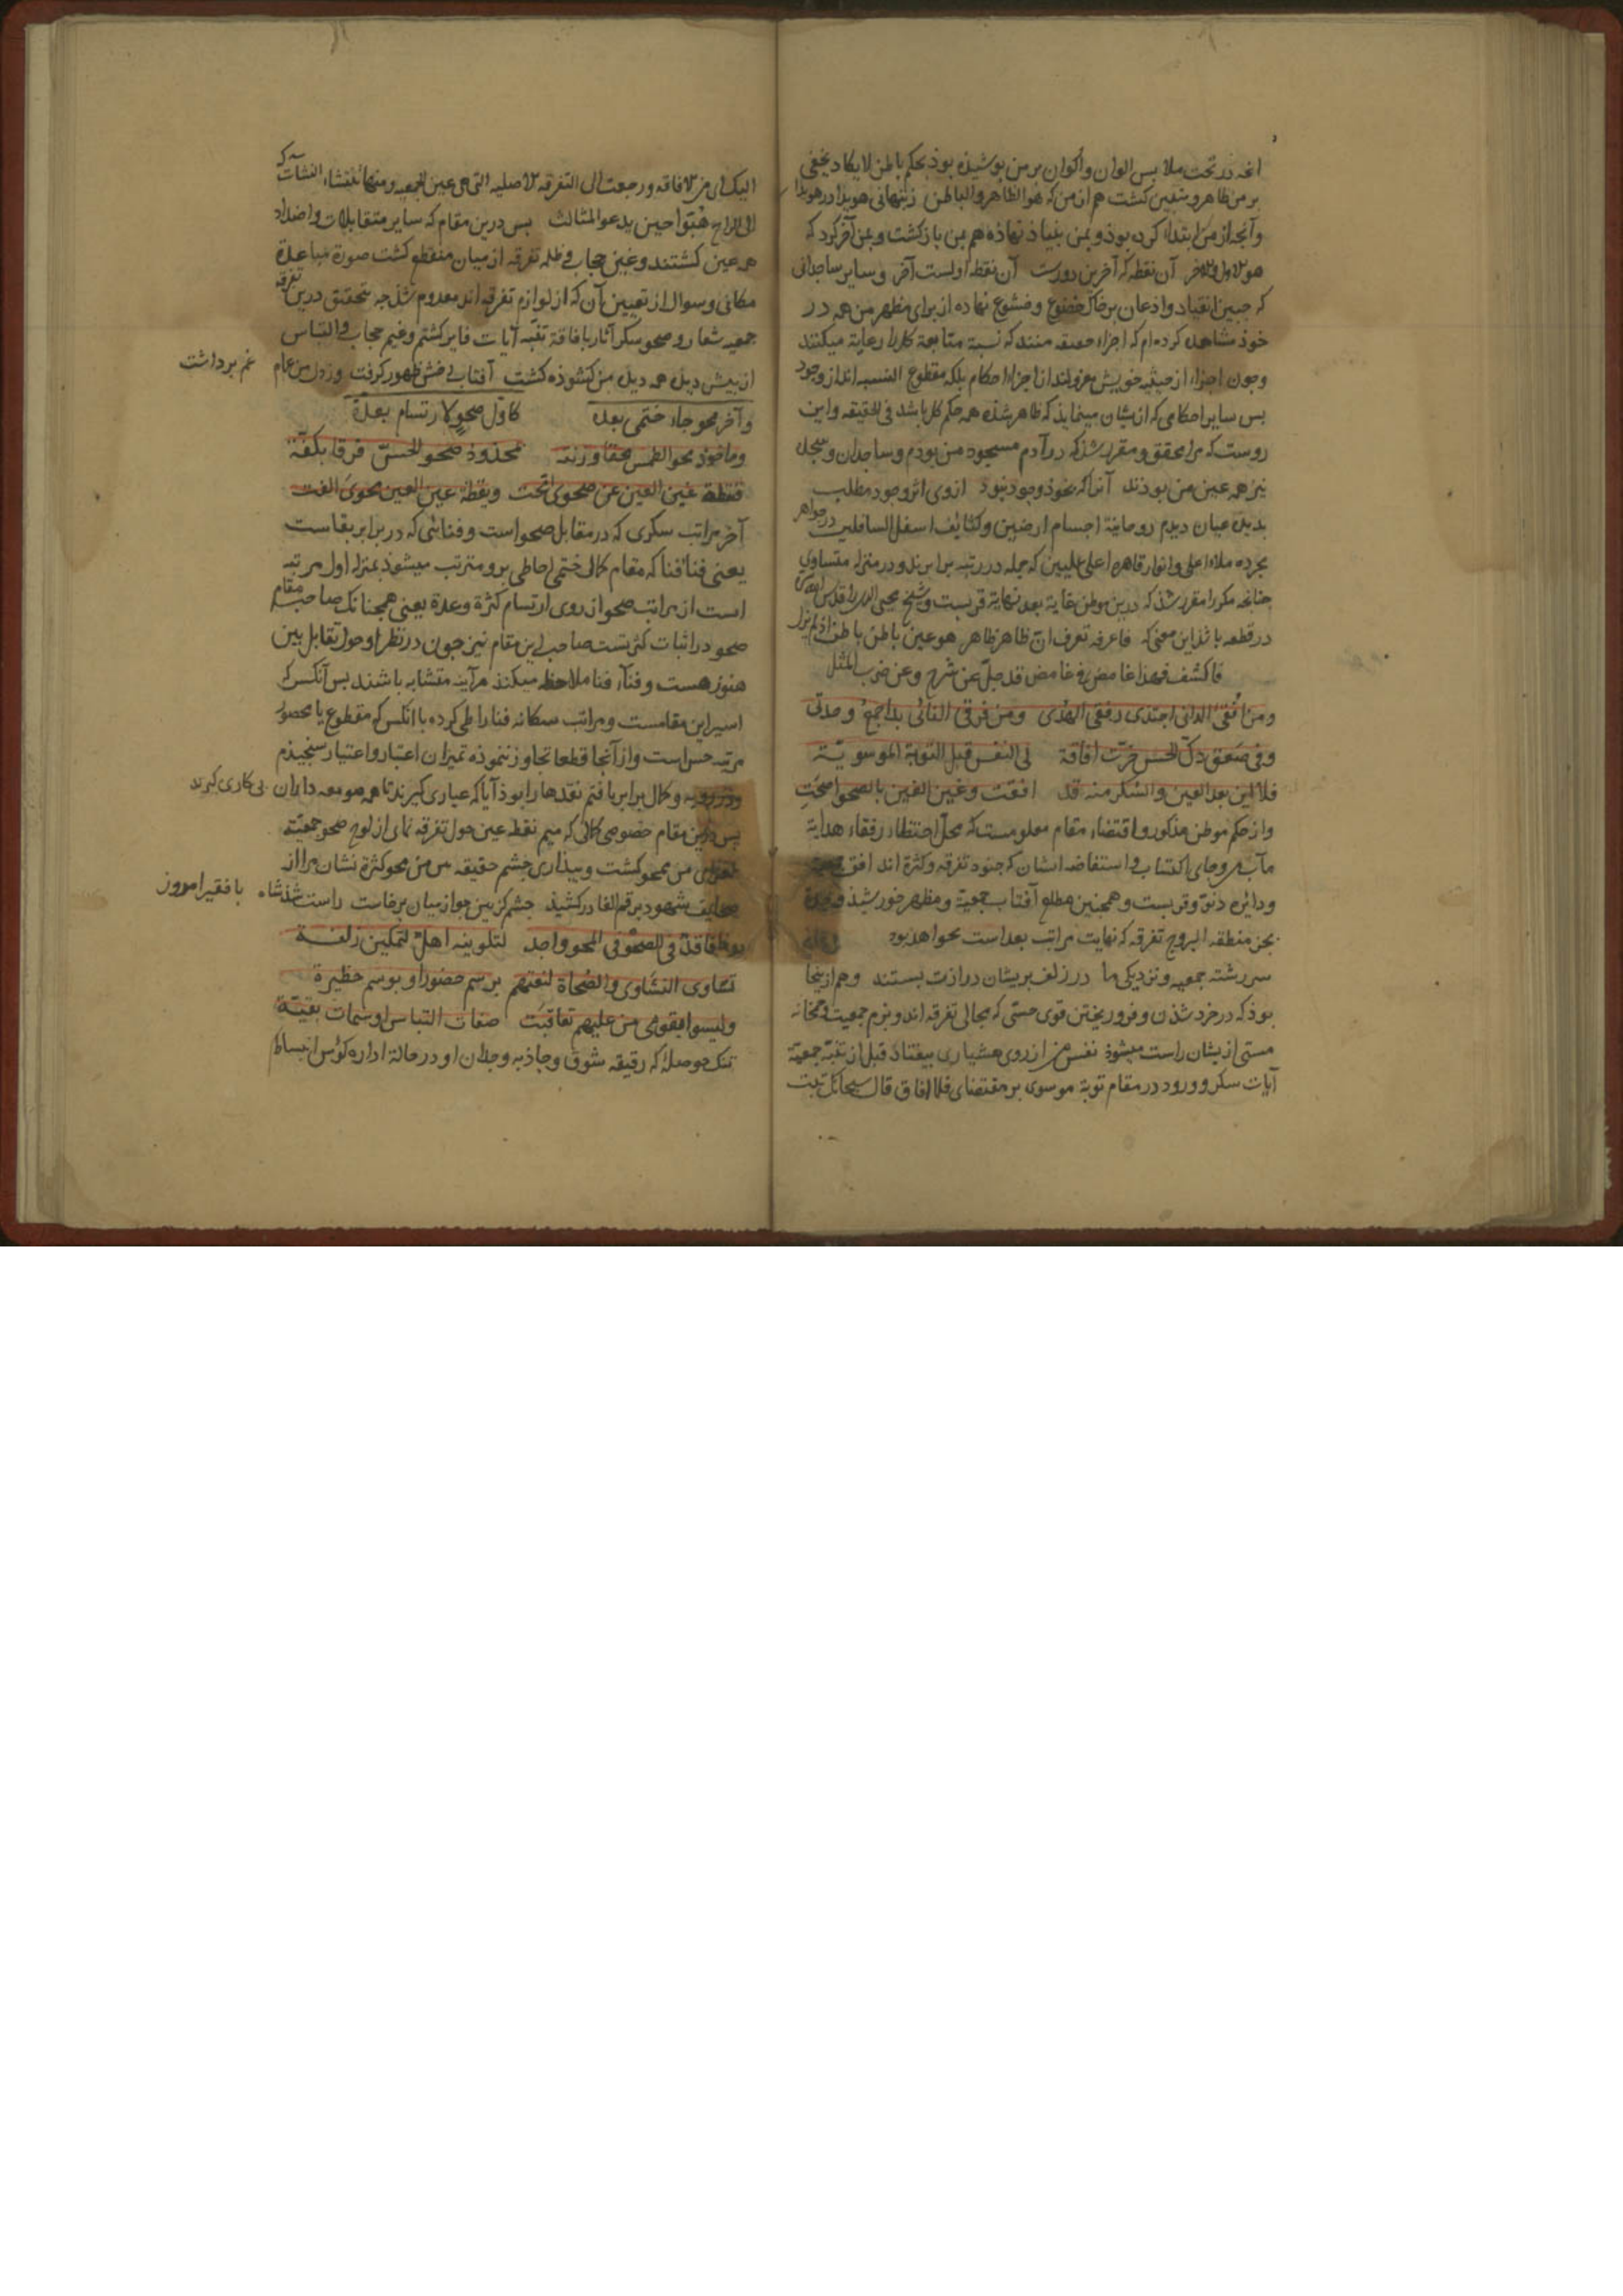 انچه در تحت ملابس الوان و اکوان بر من پوشیده بوذ بحکم باطن لا یکاد یخفی
بر من ظاهر و متعین کشت هم از من که هو الظاهر و الباطن ز پنهانی هویدا در هویدا
و آنچه از من ابتدا کرده بوذ و بمن بنیاذ نهاذه هم بمن باز کشت و بمن آخر کرد که
هو الاول و الاخر آن نقطه که آخرین دورست آن نقطه اولست آخر و سایر ساجدانی
که جبین انقیاد و اذعان بر خاک خضوع و خشوع نهاده از برای مظهر من همه در
خوذ مشاهده کرده‌ام که اجزاء منند که نسبة متابعة کل را رعایة میکنند
و چون اجزاء از حیثیه خویش معزولند از اجراء احکام بلکه مقطوع النسبه اند از وجود
بس سایر احکامی که از یشان مینمایذ که ظاهر شذه همه حکم کل باشد فی الحقیقه و این
روست که مرا محقق و مقرر شذ که در آدم مسجود من بودم و ساجدان و سجده
نیز همه عین من بوذند آنرا که بخوذ وجود نبود از وی اثر وجود مطلب
بدیده عیان دیدم روحانیة اجسام ارضین و کثایف اسفل السافلین در جواهر
مجرده ملاء اعلی و انوار قاهره اعلی علیین که جمله در رتبه برابرند و در منزله متساوی
چنانچه مکررا مقرر شذ که درین موطن غایة بعد نهایة قربست و شیخ محیی الدین را قدس
در قطعه باشذ این معنی که فاعرفه تعرف ان ظاهر ظاهر هو عین باطن باطن اذ لم یزل
فاکشف فهذا غامض فی غامض قد جل عن شرح و عن ضرب المثل
و من افقی الدانی اجتدی رفقی الهدی و من فرقی الثانی بدا جمع وحدتی
و فی صعق دک الحس خرت افاقة لی النفس قبل التوبة الموسویة
فلا این بعد العین و السکر منه قد افقت و غین الغین بالصحو اصحت
و از حکم موطن مذکور و اقتضاء مقام معلومست که محل احتظاء رفقاء هدایة
مآب من و جای اکتساب و استفاضه ایشان که جنود تفرقه و کثرة اند افق
و دایره دنو و قربست و همچنین مطلع آفتاب جمعیة و مظهر خورشید وحدة
بجز منطقه البروج تفرقه که نهایت مراتب بعد است نخواهد بود
سررشته جمعیه و نزدیکی ما در زلف بریشان درازت بستند و هم ازینجا
بوذ که در خرد شذن و فرو ریختن قوی حسی که مجالی تفرقه اند و بزم جمعیت و خمخانه
مستی از یشان راست میشوذ نفس من از روی هشیاری بیفتاد قبل از تفیه جمعیة
آیات سکر و ورود در مقام توبة موسوی بر مقتضای فلما افاق قال سبحانک تبت
الیک ای من الافاقه و رجعت الی التفرقه الاصلیه التی هی عین الجمعیه و منها تنشاء النشآت که
الی الراح هبوا حین یدعو المثالث بس درین مقام که سایر متقابلات و اضداد
همه عین کشتند و غین حجاب فی ظلمه تفرقه از میان منقطع کشت صورة مباعدة
مکانی و سوال از تعیین آن که از لوازم تفرقه اند معدوم شذ چه بتحقق درین تفرقه
جمعیه شعار و صحو سکر آثار بافاقة تفیه آیات فایز کشتم و غیم حجاب فی التباس
از پیش دیده همه دیده من کشوذه کشت آفتابی خش ظهور کرفت وز دل من عام
غم برداشت
و آخر محو جاء ختمی بعده کاول صحو لارتسام بعدة
و ماخوذ محو الطمس محقا وزنته بمحذوذ صحو الحس فرقا بکفة
فنقطة غین الغین عن صحوی انمحت و یقظة عین العین محوی الغت
آخر مراتب سکری که در مقابل صحو است و فنائی که در برابر بقاست
یعنی فناء فنا که مقام کمال ختمی احاطی برو مترتب میشوذ بمنزله اول مرتبه
است از مراتب صحو از روی ارتسام کثرة و عدة یعنی همچنانک صاحب مقام
صحو در اثبات کثرتست صاحب این مقام نیز چون در نظر او حول تقابل بین
هنوز هست و فناء فنا ملاحظه میکند هر آینه متشابه باشند بس آنکس که
اسیر این مقامست و مراتب سکانه فنا را طی کرده با آنکس که مقطوع یا محصور
مرتبه حس است و از آنجا قطعا تجاوز ننموذه بمیزان اعتبار و اعتیار سنجیذم
و کمال برابر یافتم نقدها را بوذ آیا که عیاری کیرند تا همه صومعه داران
بی کاری کیرند
بس درین مقام خصوصی کمالی که میم نقطه عین حول تفرقه نمای از لوح صحو جمعیة
من ممحو کشت و بیذاری چشم حقیقه من محو کثرة نشان مرا از
صحایف شهود برقم الغا درکشیذ چشم کژبین جو از میان برخاست راست شذ شاه
با فقیر امروز
و ما فاقد فی الصحو فی المحو واجد لتلوینه اهلا لتمکین زلفة
تساوی النشاوی و الصحاة لنعتهم برسم حضور او بوسم حظیرة
و لیسوا بقومی من علیهم تعاقبت صفات التباس او سمات بقیة
تنک حوصلهٔ که رقیقه شوق و جاذبه وجدان او در حالة اداره کوس انبساط